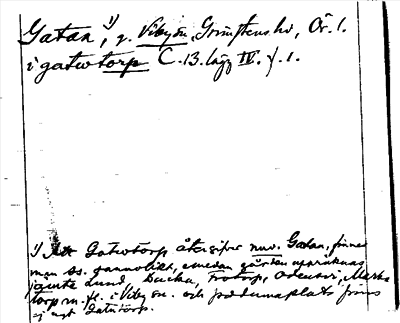 Gatan, 1) g. Viby sn, Grimstens hd, Ör. l.
i gatwtorp C. 13. lägg IV. f. 1.
1) Att Gatwtorp återgifver nuv. Gatan, finner
man ss. sannolikt, emedan gården uppräknas
jämte Lund, Bocka, Frotorp, Odensvi, Marka
torp m. fl. i Viby sn. och på denna plats finns
ej nytt Gatutorp.